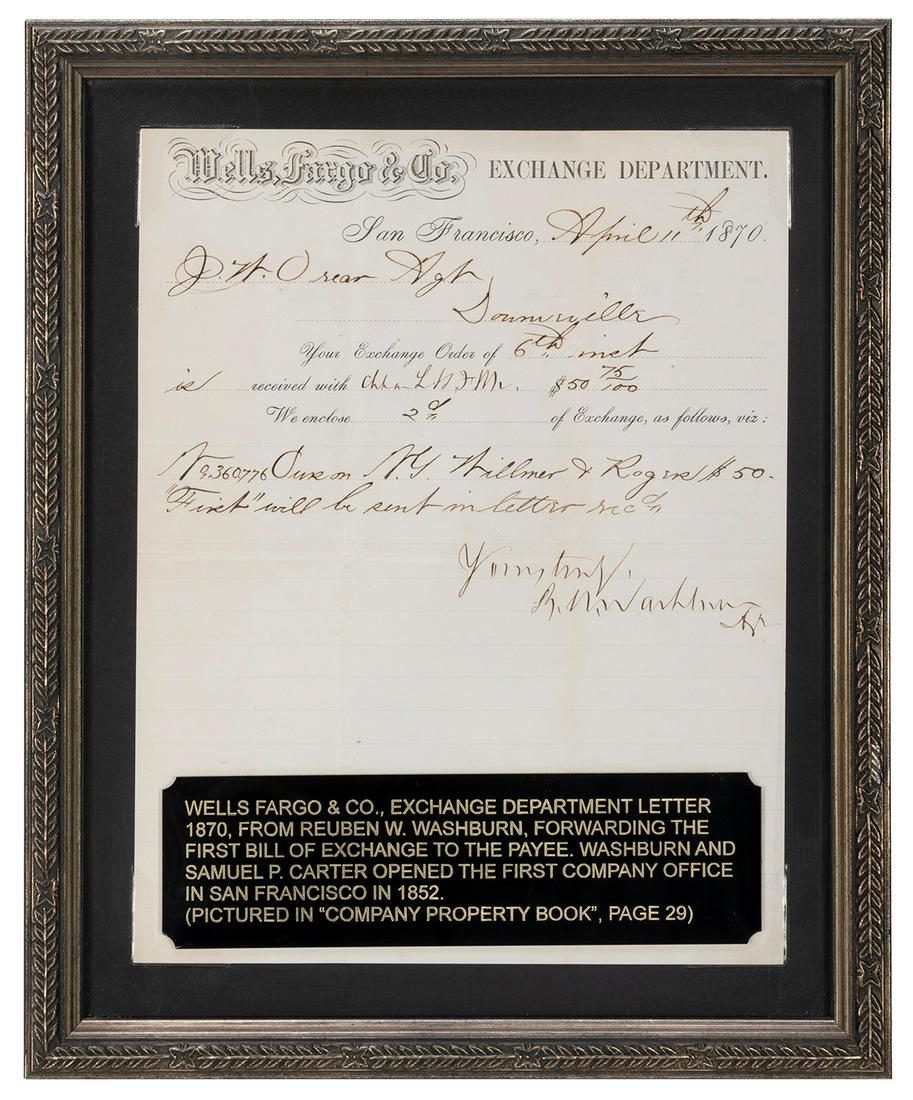 Wells, Fargo & Co. EXCHANGE DEPARTMENT.
San Francisco, April 11th 1870.
J. W. Orear Agt
Downieville
Your Exchange Order of 6th inst
is received with $50 75/100
We enclose 2d of Exchange, as follows, viz:
No. 360,776 Ours on N.Y. Willmer & Rogers $50.
"First" will be sent in letter recd
Yours truly,
R. W. Washburn
WELLS FARGO & CO., EXCHANGE DEPARTMENT LETTER
1870, FROM REUBEN W. WASHBURN, FORWARDING THE
FIRST BILL OF EXCHANGE TO THE PAYEE. WASHBURN AND
SAMUEL P. CARTER OPENED THE FIRST COMPANY OFFICE
IN SAN FRANCISCO IN 1852.
(PICTURED IN “COMPANY PROPERTY BOOK”, PAGE 29)